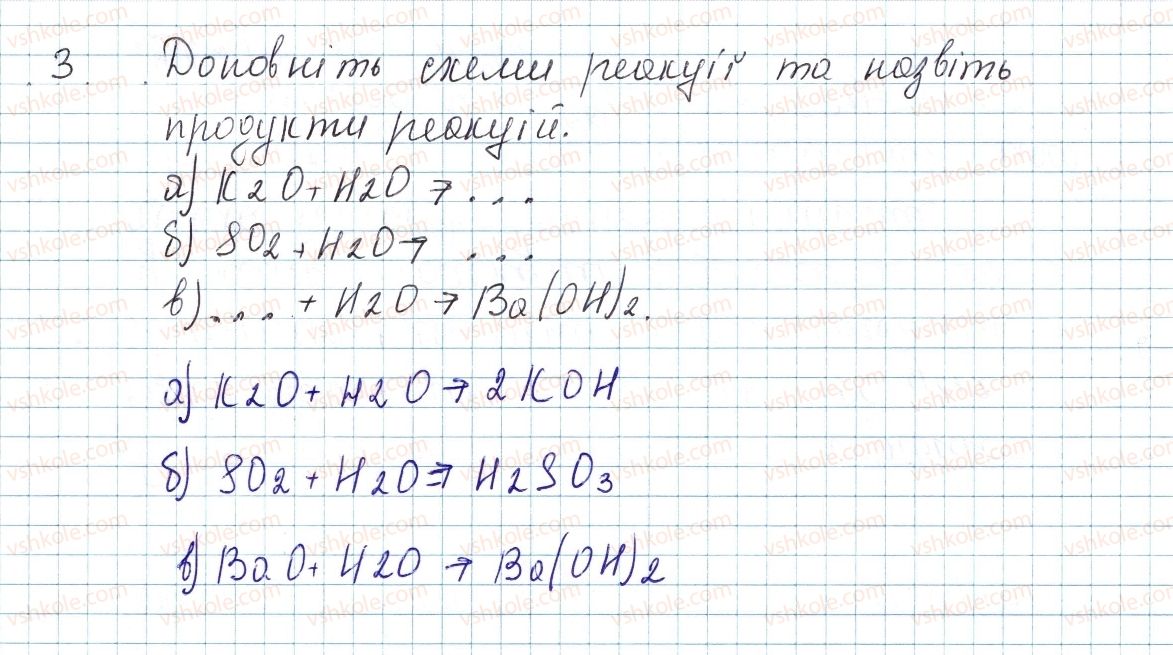 3. Доповніть схеми реакції та назвіть
продукти реакцій.
а) K2O + H2O → ...
б) SO2 + H2O → ...
в) ... + H2O → Ba(OH)2.
а) K2O + H2O → 2KOH
б) SO2 + H2O → H2SO3
в) BaO + H2O → Ba(OH)2